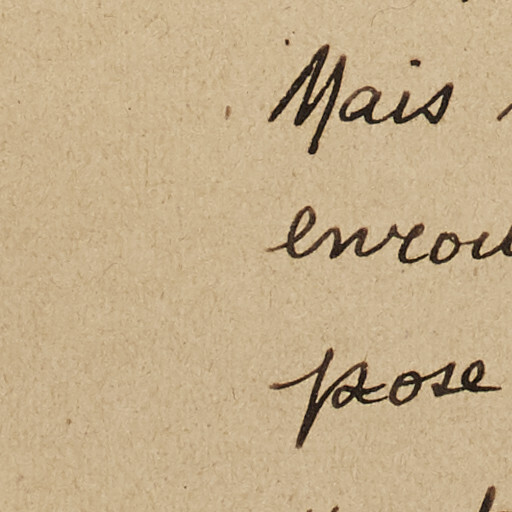 Mais
enrou
pose